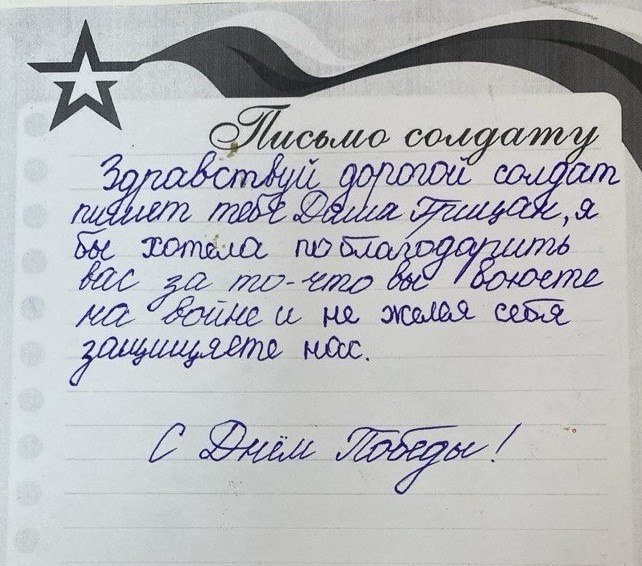 Письмо солдату
Здравствуй дорогой солдат
пишет тебе Даша Грицан, я
бы хотела поблагодарить
вас за то-что вы воюете
на войне и не желея себя
защищяете нас.
С Днём Победы!